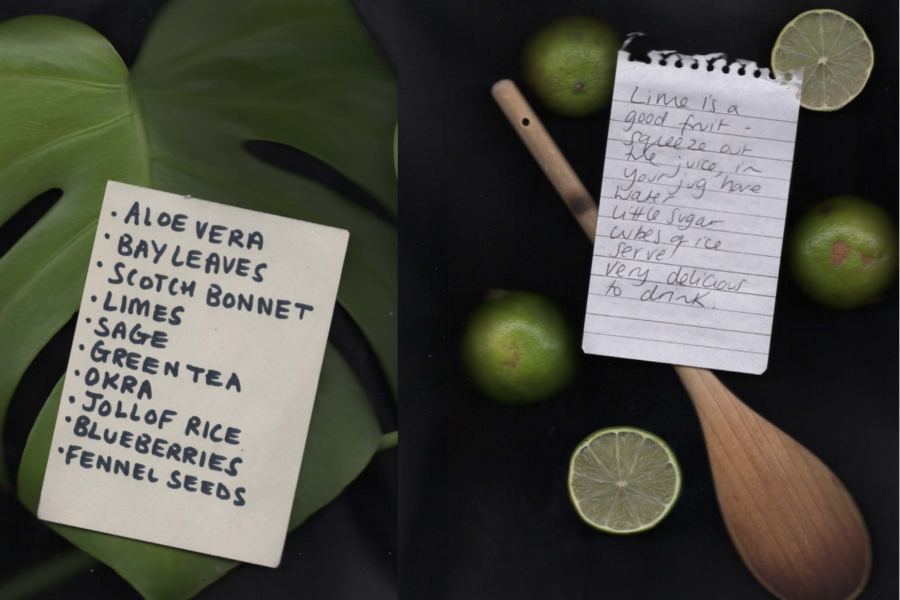 • ALOE VERA
• BAY LEAVES
• SCOTCH BONNET
• LIMES
• SAGE
• GREEN TEA
• OKRA
• JOLLOF RICE
• BLUEBERRIES
• FENNEL SEEDS
Lime is a
good fruit -
squeeze out
the juice, in
your jug have
water
little sugar
cubes of ice
serve
very delicious
to drink.